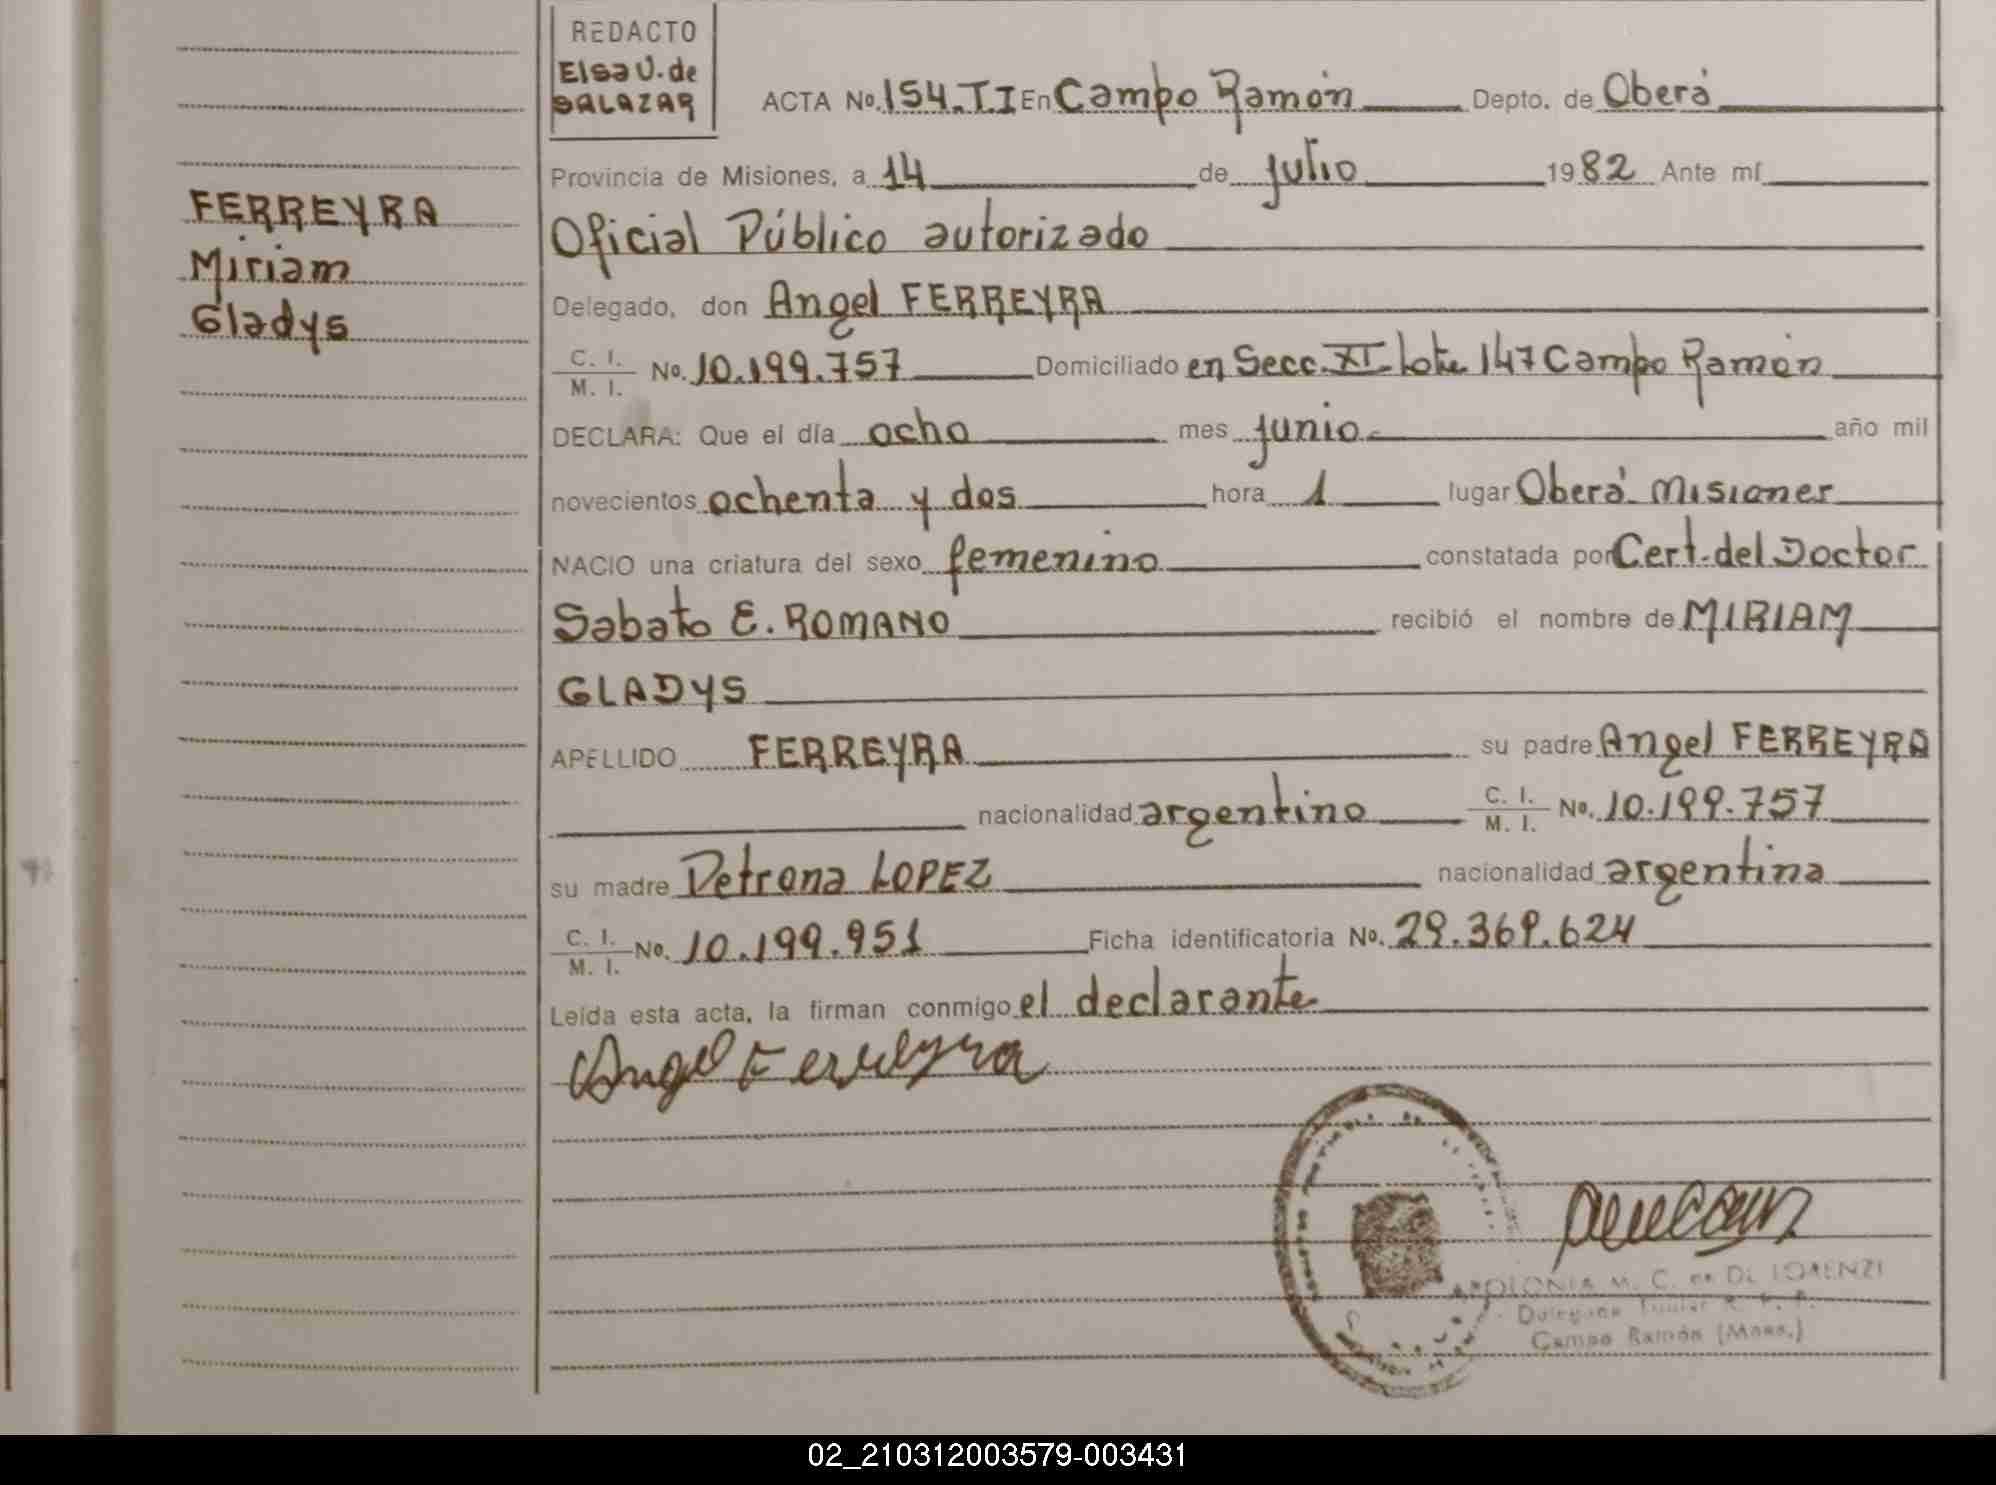 REDACTO
Elsa V. de
SALAZAR
ACTA No. 154. TI En Campo Ramón Depto. de Oberá
Provincia de Misiones, a 14 de julio 1982 Ante mí
FERREYRA
Miriam
Gladys
Oficial Público autorizado
Delegado, don Angel FERREYRA
C. I.
M. I. No. 10.199.757 Domiciliado en Secc. XI Lote 147 Campo Ramón
DECLARA: Que el día ocho mes junio año mil
novecientos ochenta y dos hora 1 lugar Oberá Misiones
NACIO una criatura del sexo femenino constatada por Cert. del Doctor
Sabato E. ROMANO recibió el nombre de MIRIAM
GLADYS
APELLIDO FERREYRA su padre Angel FERREYRA
nacionalidad argentino C. I. M. I. No. 10.199.757
su madre Petrona LOPEZ nacionalidad argentina
C. I. M. I. No. 10.199.951 Ficha identificatoria No. 29.369.624
Leída esta acta, la firman conmigo el declarante
Angel Ferreyra
APOLONIA M. C. de DE LORENZI
Delegada Titular R. P. P.
Campo Ramón (Mnes.)
02_210312003579-003431